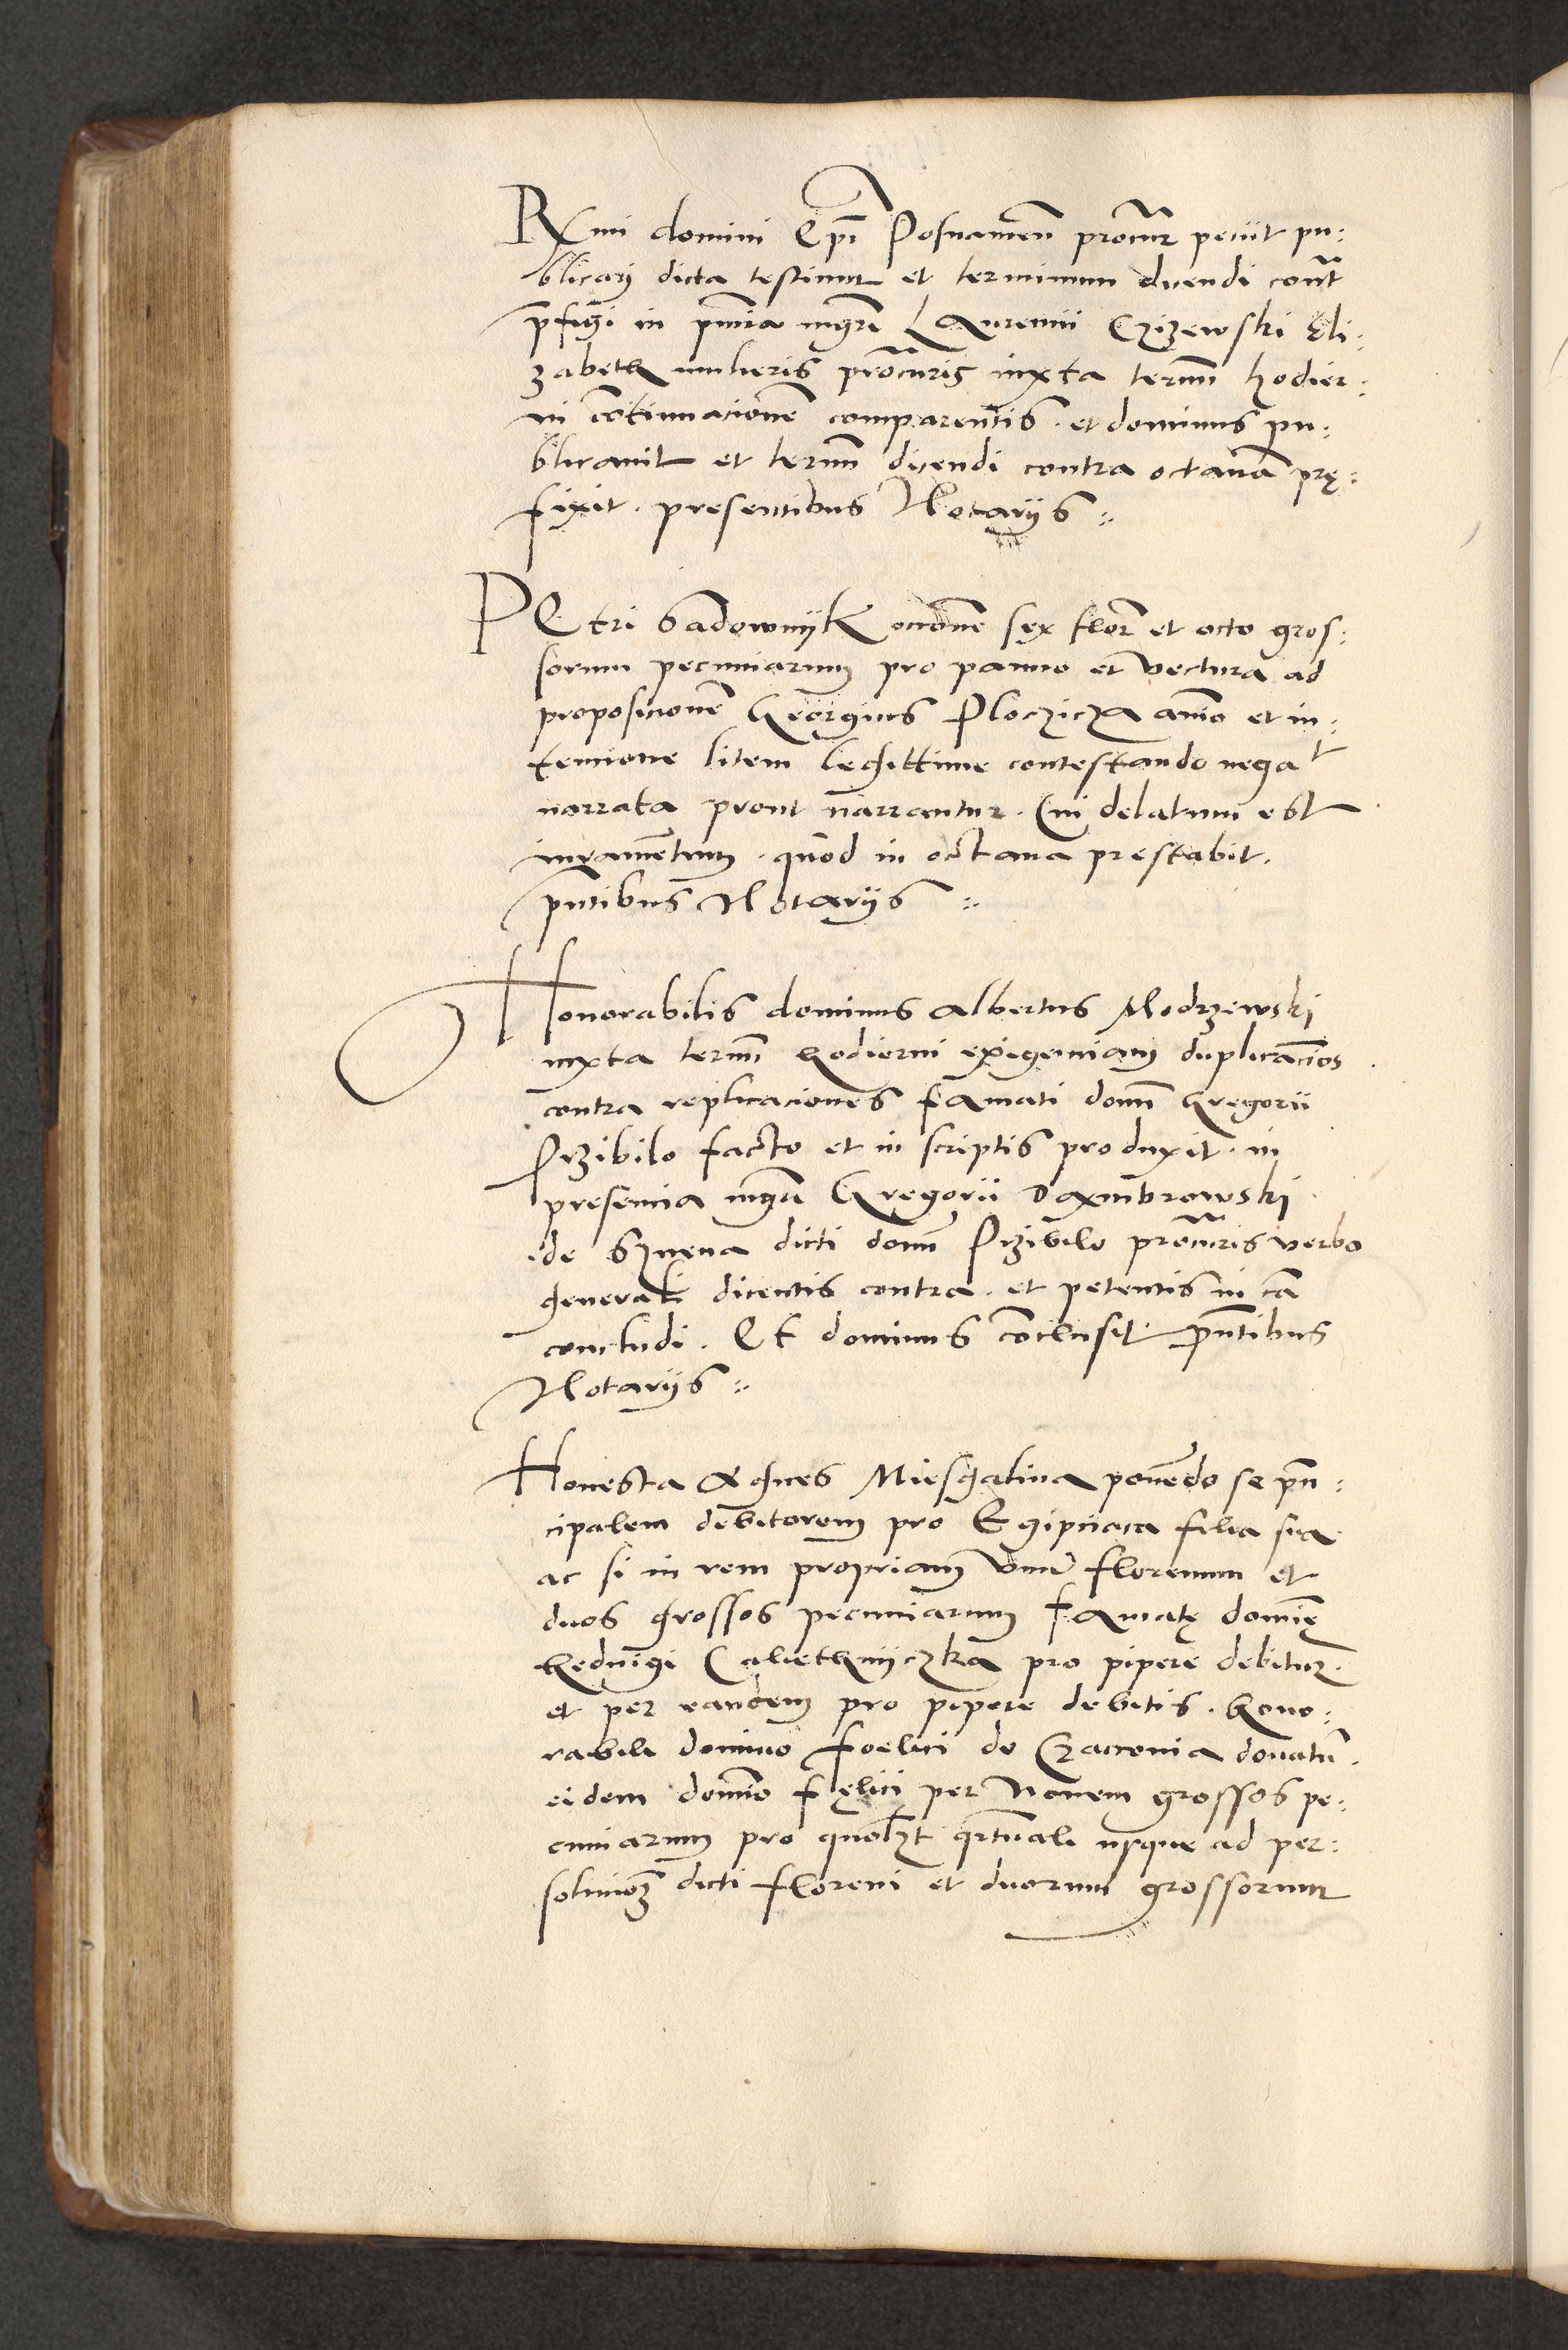 Rxmi domini Epī Posnanien̄ procur̄ peciit pu:
blicari dicta testium et terminum dicendi contr̄
p̄figi in pn̄cia mgrī Laurencii Czizewski Eli:
zabeth mulieris procuris iuxta termī hodier:
ni cōtinuacionē comparentis. et dominus pu:
blicauit et termī dicendi contra octauā prę:
fixit. presentibus Notariis

PEtri Sadownyk occionē sex flor̄ et octo gros:
sorum pecuniarum pro panno et vectura ad
proposicionē Georgius Ploczicza animo et in:
tencione litem legittime contestando negat
narrata prout narrantur. Cui delatum est
iuramentum. quod in octaua prestabit.
pn̄tibus Notariis

Honorabilis dominus Albertus Modrzewski
iuxta termī hodierni exigenciam duplicacōes
contra replicaciones famati domī Gregorii
Przibilo facto et in scriptis produxit. in
presencia mgrī Gregorii Daxmbrowski
de Synena dicti domī Przibilo procuris verbo
generali dicentis contra. et petentis in cā
concludi. Et dominus cōclusit. pn̄tibus
Notariis

Honesta Agnes Miesgalina ponēdo se prin:
cipalem debitorem pro Egipciaca filia sua
ac si in rem propriam vnū florenum et
duos grossos pecuniarum famatę dominę
Heduigi Calethniczka pro pipere debitur̄.
et per eandem pro pipere debitis. Hono:
rabili domino Foelici de Czacconia donatū.
eidem domino Fęlici per Nouem grossos pe:
cuniarum pro quolzt qrtuali usque ad per:
solucioz dicti floreni et duorum grossorum